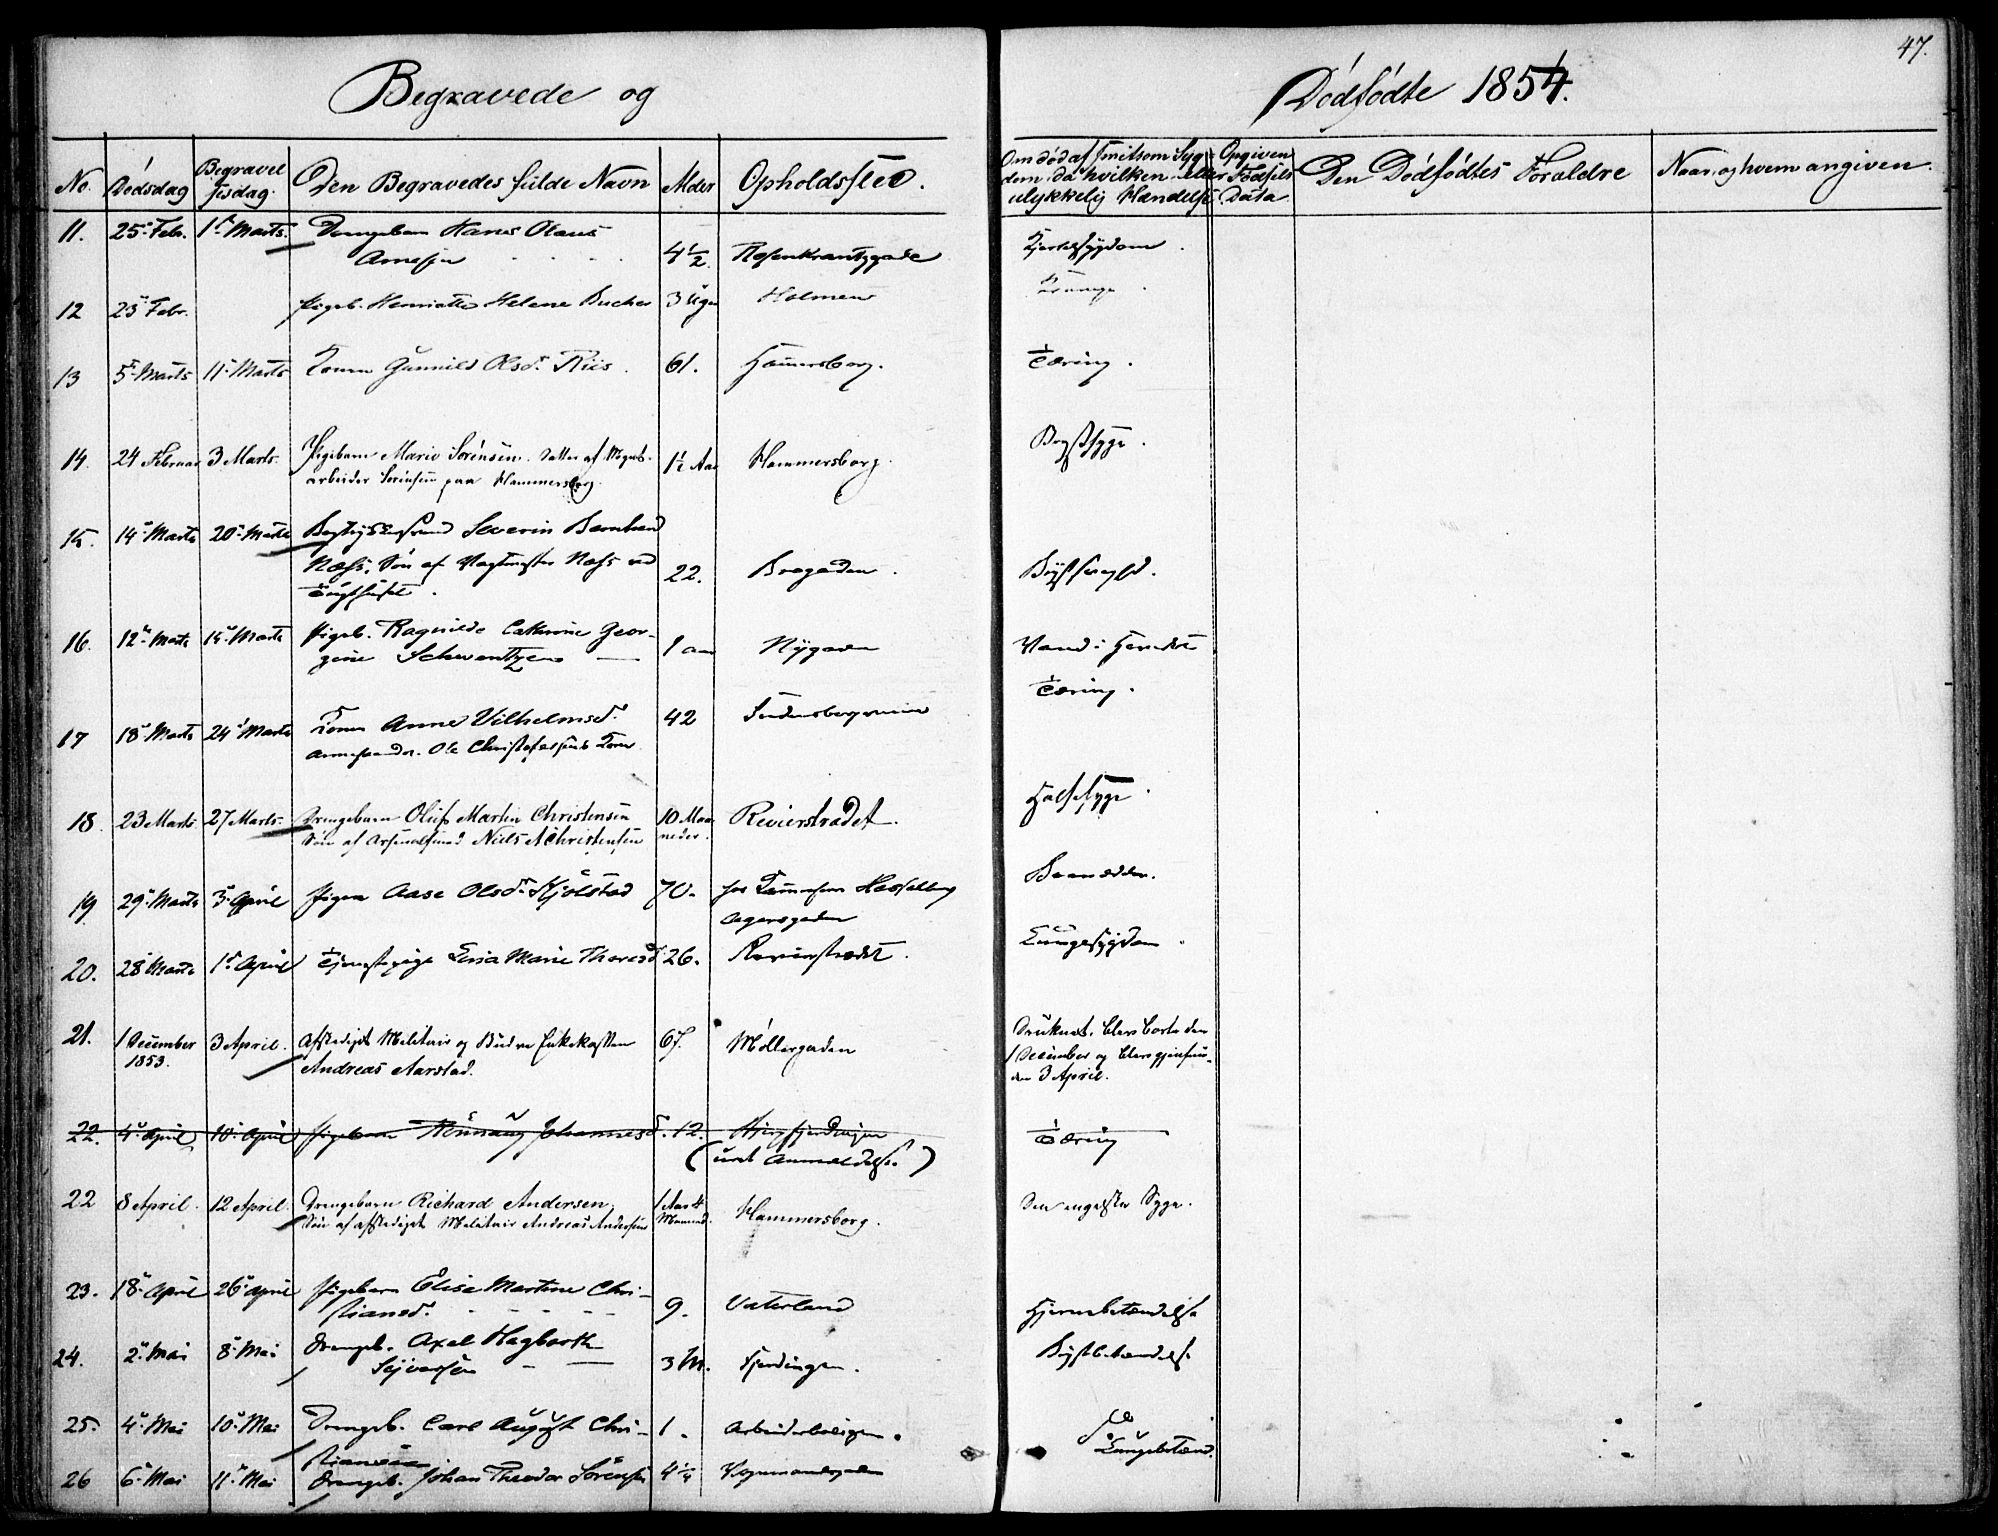 47.
Begravede og
Dödfödte 1854.
No.
Dödsdag
Begravel
sesdag.
Den Begravedes fulde Navn
Alder
Opholdssted.
Om död af smitsom Syg-
dom, da hvilken eller
ulykkelig Hændelse
Opgiven
Födsels
Data.
Den Dödfödtes Foræeldre
Naar og hvem angiven.
11. 25. Febr. 1. Marts. Drengebarn Hans Olaus
Arnesen 4½ Rosenkrantzgade Kjertelsygdom.
12 25 Febr. Pigeb. Henriette Helene Bucher 3 Uger Holmen
13 5 Marts 11 Marts Konen Gunnild Olsd. Riis. 61. Hammersborg. Tæring.
14. 24 Februar 3 Marts. Pigebarn Marie Sörensen. Datter af
arbeider Sörensen paa Hammersborg. 1½ Aar Hammersborg. Brystsyge.
15. 14 Marts 20 Marts Severin Bernhard
Næss. Sön af Vagtmester Næss ved
Tugthuset. 22. Brogaden. Brystsvaghd.
16. 12 Marts 15 Marts Pigeb. Ragnilde Cathrine Geor-
gine Schwentzen 1 aar Nygaden Vand i Hovedet
17 18 Marts 24 Marts Konen Anne Vilhelmsd.
Ole Christofersens Kone 42 Tæring.
18. 23 Marts. 27 Marts. Drengebarn Oluf Martin Christensen
Sön af Arsenalsmd Niels A Christensen 10 Maa-
neder. Revierstrædet. Halssyge.
19. 29 Marts 3 April Pigen Aase Olsd. Kjölstad 70. hos Hasselberg
Agersgaden
20. 28 Marts 1 April Tjenestepige Lina Marie Thoresd 26. Revierstrædet. Lungesygdom.
21. 1 December
1853. 3 April. Afskediget Militair og
Andreas Aarstad. 67. Möllergaden Druknet. Blev borte den
1 December og blev gjenfun-
den 3 April.
22. 4 April 10 April Pigebarn Johannesd. 12.
(uret Anmeldelse) Tæring
22 8 April. 12 April. Drengebarn Richard Andersen,
Sön af afskediget Militair Andreas Andersen 1 Aar 4
Maaned. Hammersborg. Den engelske Syge.
23. 18 April 26 April Pigebarn Elise Martine Chri-
stiansd. 9. Vaterland Hjernebetændelse
24. 2 Mai 8 Mai Drengb. Axel Hagbarth
Sejversen 3 M. Fjerdingen. Brystbetændelse
25. 4 Mai 10 Mai Drengeb. Carl August Chri-
stiansen 1. Arbeiderboligen. Lungebetænd.
26 6 Mai 11 Mai Drengeb. Johan Theodor Sörensen 4¼ Vognmandsgaden